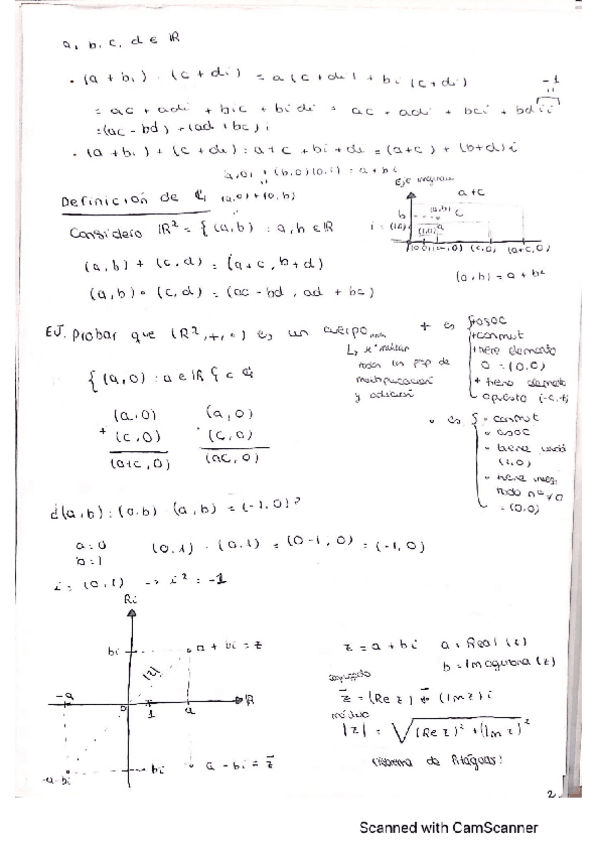 a, b, c, d ∈ ℝ
· (a + bi) · (c + di) = a(c + di) + bi(c + di)
-1
= ac + adi + bic + bidi = ac + adi + bci + bdii
= (ac - bd) + (ad + bc)i
· (a + bi) + (c + di) = a + c + bi + di = (a+c) + (b+d)i
(a,0) + (b,0)(0,1) = a + bi
Definición de ℂ (a,0)+(0,b)
Eje imaginario
a+c
Considero ℝ² = {(a,b) : a,b ∈ ℝ}
b (a,b) c
(a,b) + (c,d) = (a+c, b+d)
(c,0) (a+c,0)
(a,b) = a + bi
(a,b) · (c,d) = (ac - bd, ad + bc)
EJ. Probar que (ℝ², +, ·) es un cuerpo
↳ se
todas las prop de
multiplicación
y adición
+ es { asoc
+ conmut
+ tiene elemento
0 = (0,0)
+ tiene element
opuesto
{(a,0) : a ∈ ℝ} ⊂ ℂ
(a,0) (a,0)
+ (c,0) · (c,0)
(a+c, 0) (ac, 0)
· es { · conmut
· asoc
· tiene
(1,0)
· tiene
todo nº ≠ 0
= (0,0)
¿(a,b) : (a,b) · (a,b) = (-1,0)?
a=0
b=1
(0,1) · (0,1) = (0-1, 0) = (-1,0)
i = (0,1) → i² = -1
Ri
bi a + bi = z
|z|
-a 0 1 a ℝ
-a-bi -bi a - bi = z̄
z = a + bi a = Real (z)
b = Imaginaria (z)
conjugado
z̄ = (Re z) - (Im z)i
módulo
|z| = √(Re z)² + (Im z)²
teorema de Pitágoras!
2
Scanned with CamScanner